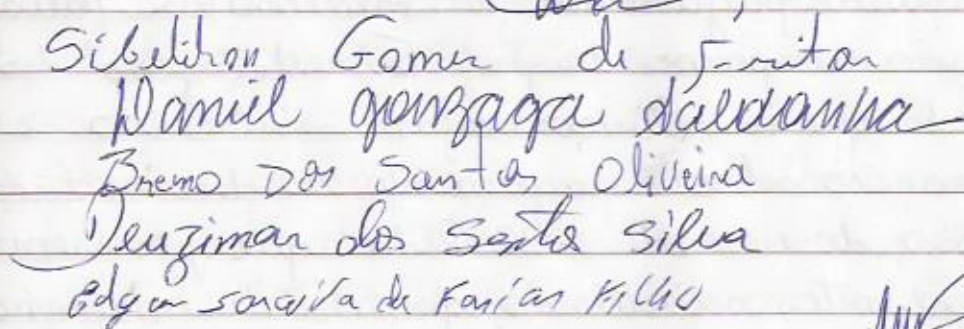 Gomes de Freitas
Daniel gonzaga Saldanha
Bremo Dos Santos Oliveira
Deuzimar dos Santos Silva
edgar saraiva de Farias Filho